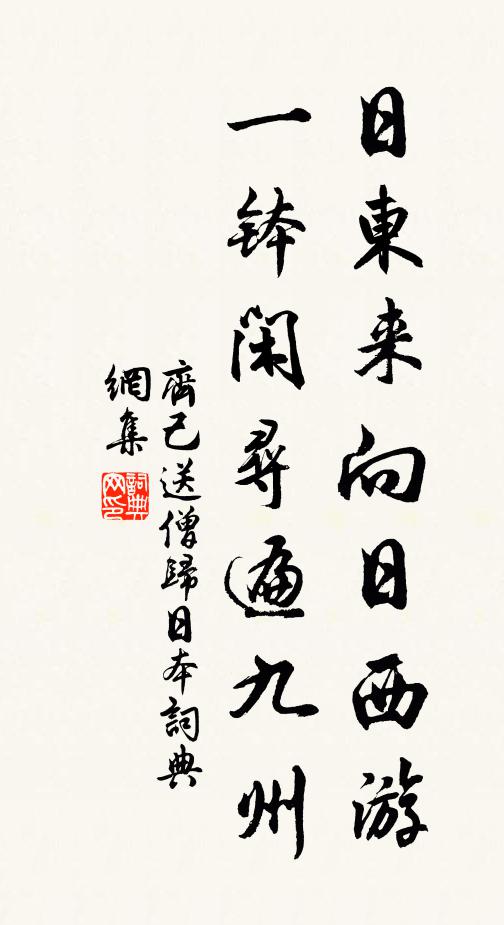 日東来向日西游
一鉢閑尋遍九州
齊己送僧歸日本詞典
網集
詞典
网印